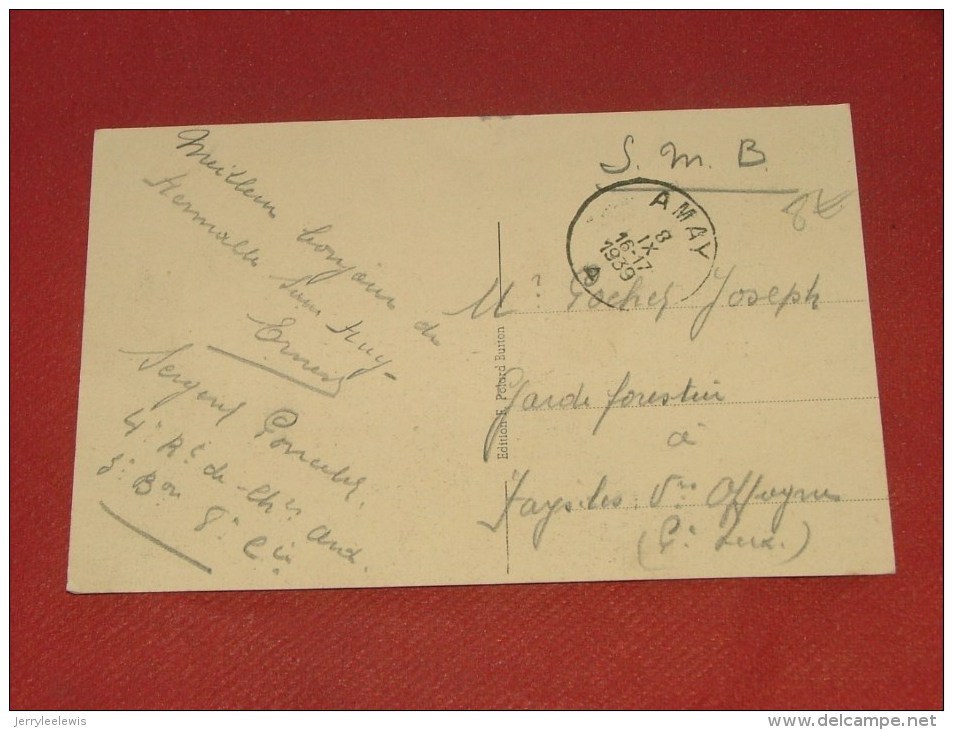 Meilleur bonjour de
Hermalle sous Huy -
Ernest
Sergent
4e Rt de Chrs Ard.
3e Bon 8e Cie
Edition F. Potard Button
S. M. B.
AMAY
8
IX
16-17
1939
A
8€
Mr Joseph
Garde forestier
à
Fays-les-Vrs Offagne
(Pce Lux.)
jerryleelewis
www.delcampe.net